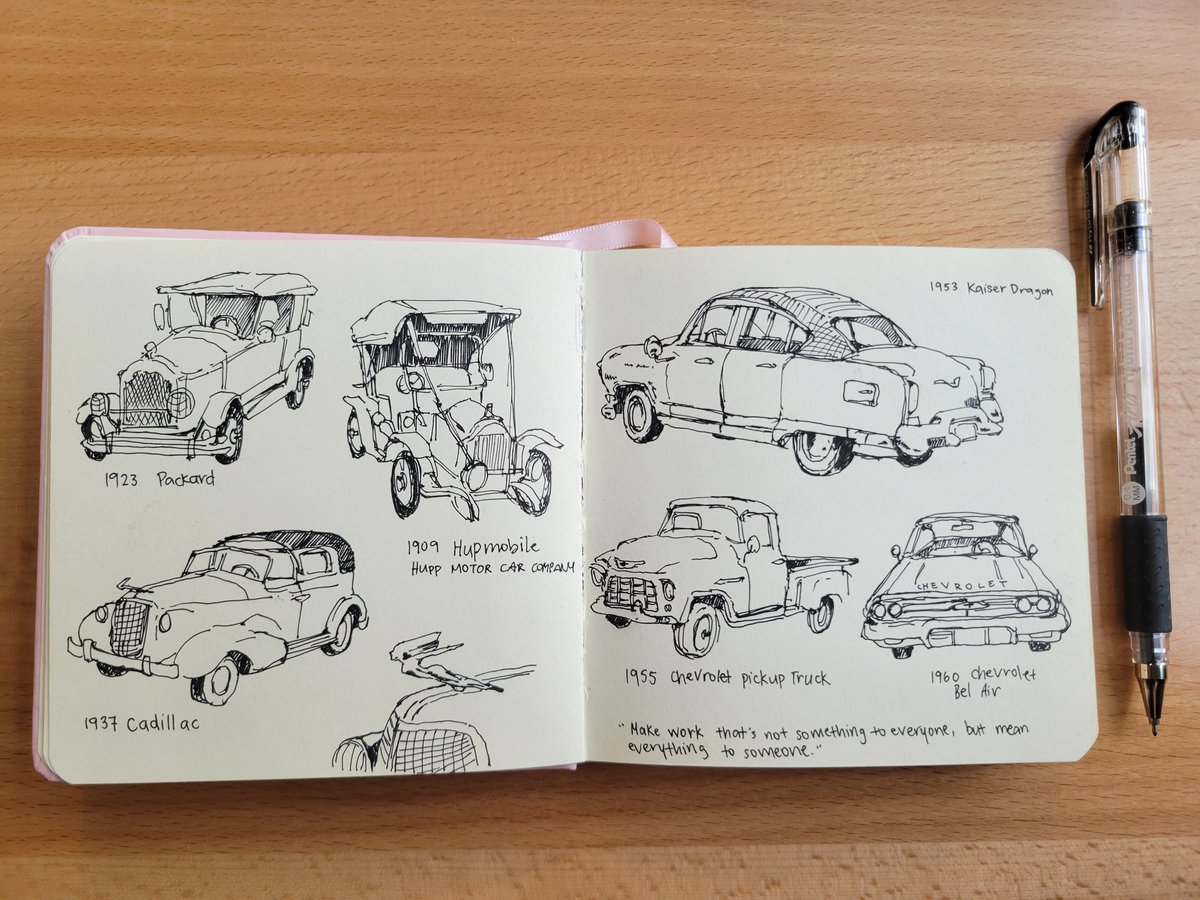 1923 Packard
1909 Hupmobile
HUPP MOTOR CAR COMPANY
1937 Cadillac
1953 Kaiser Dragon
CHEVROLET
1955 Chevrolet pickup Truck
1960 Chevrolet
Bel Air
"Make work that's not something to everyone, but mean
everything to someone."
Pentel